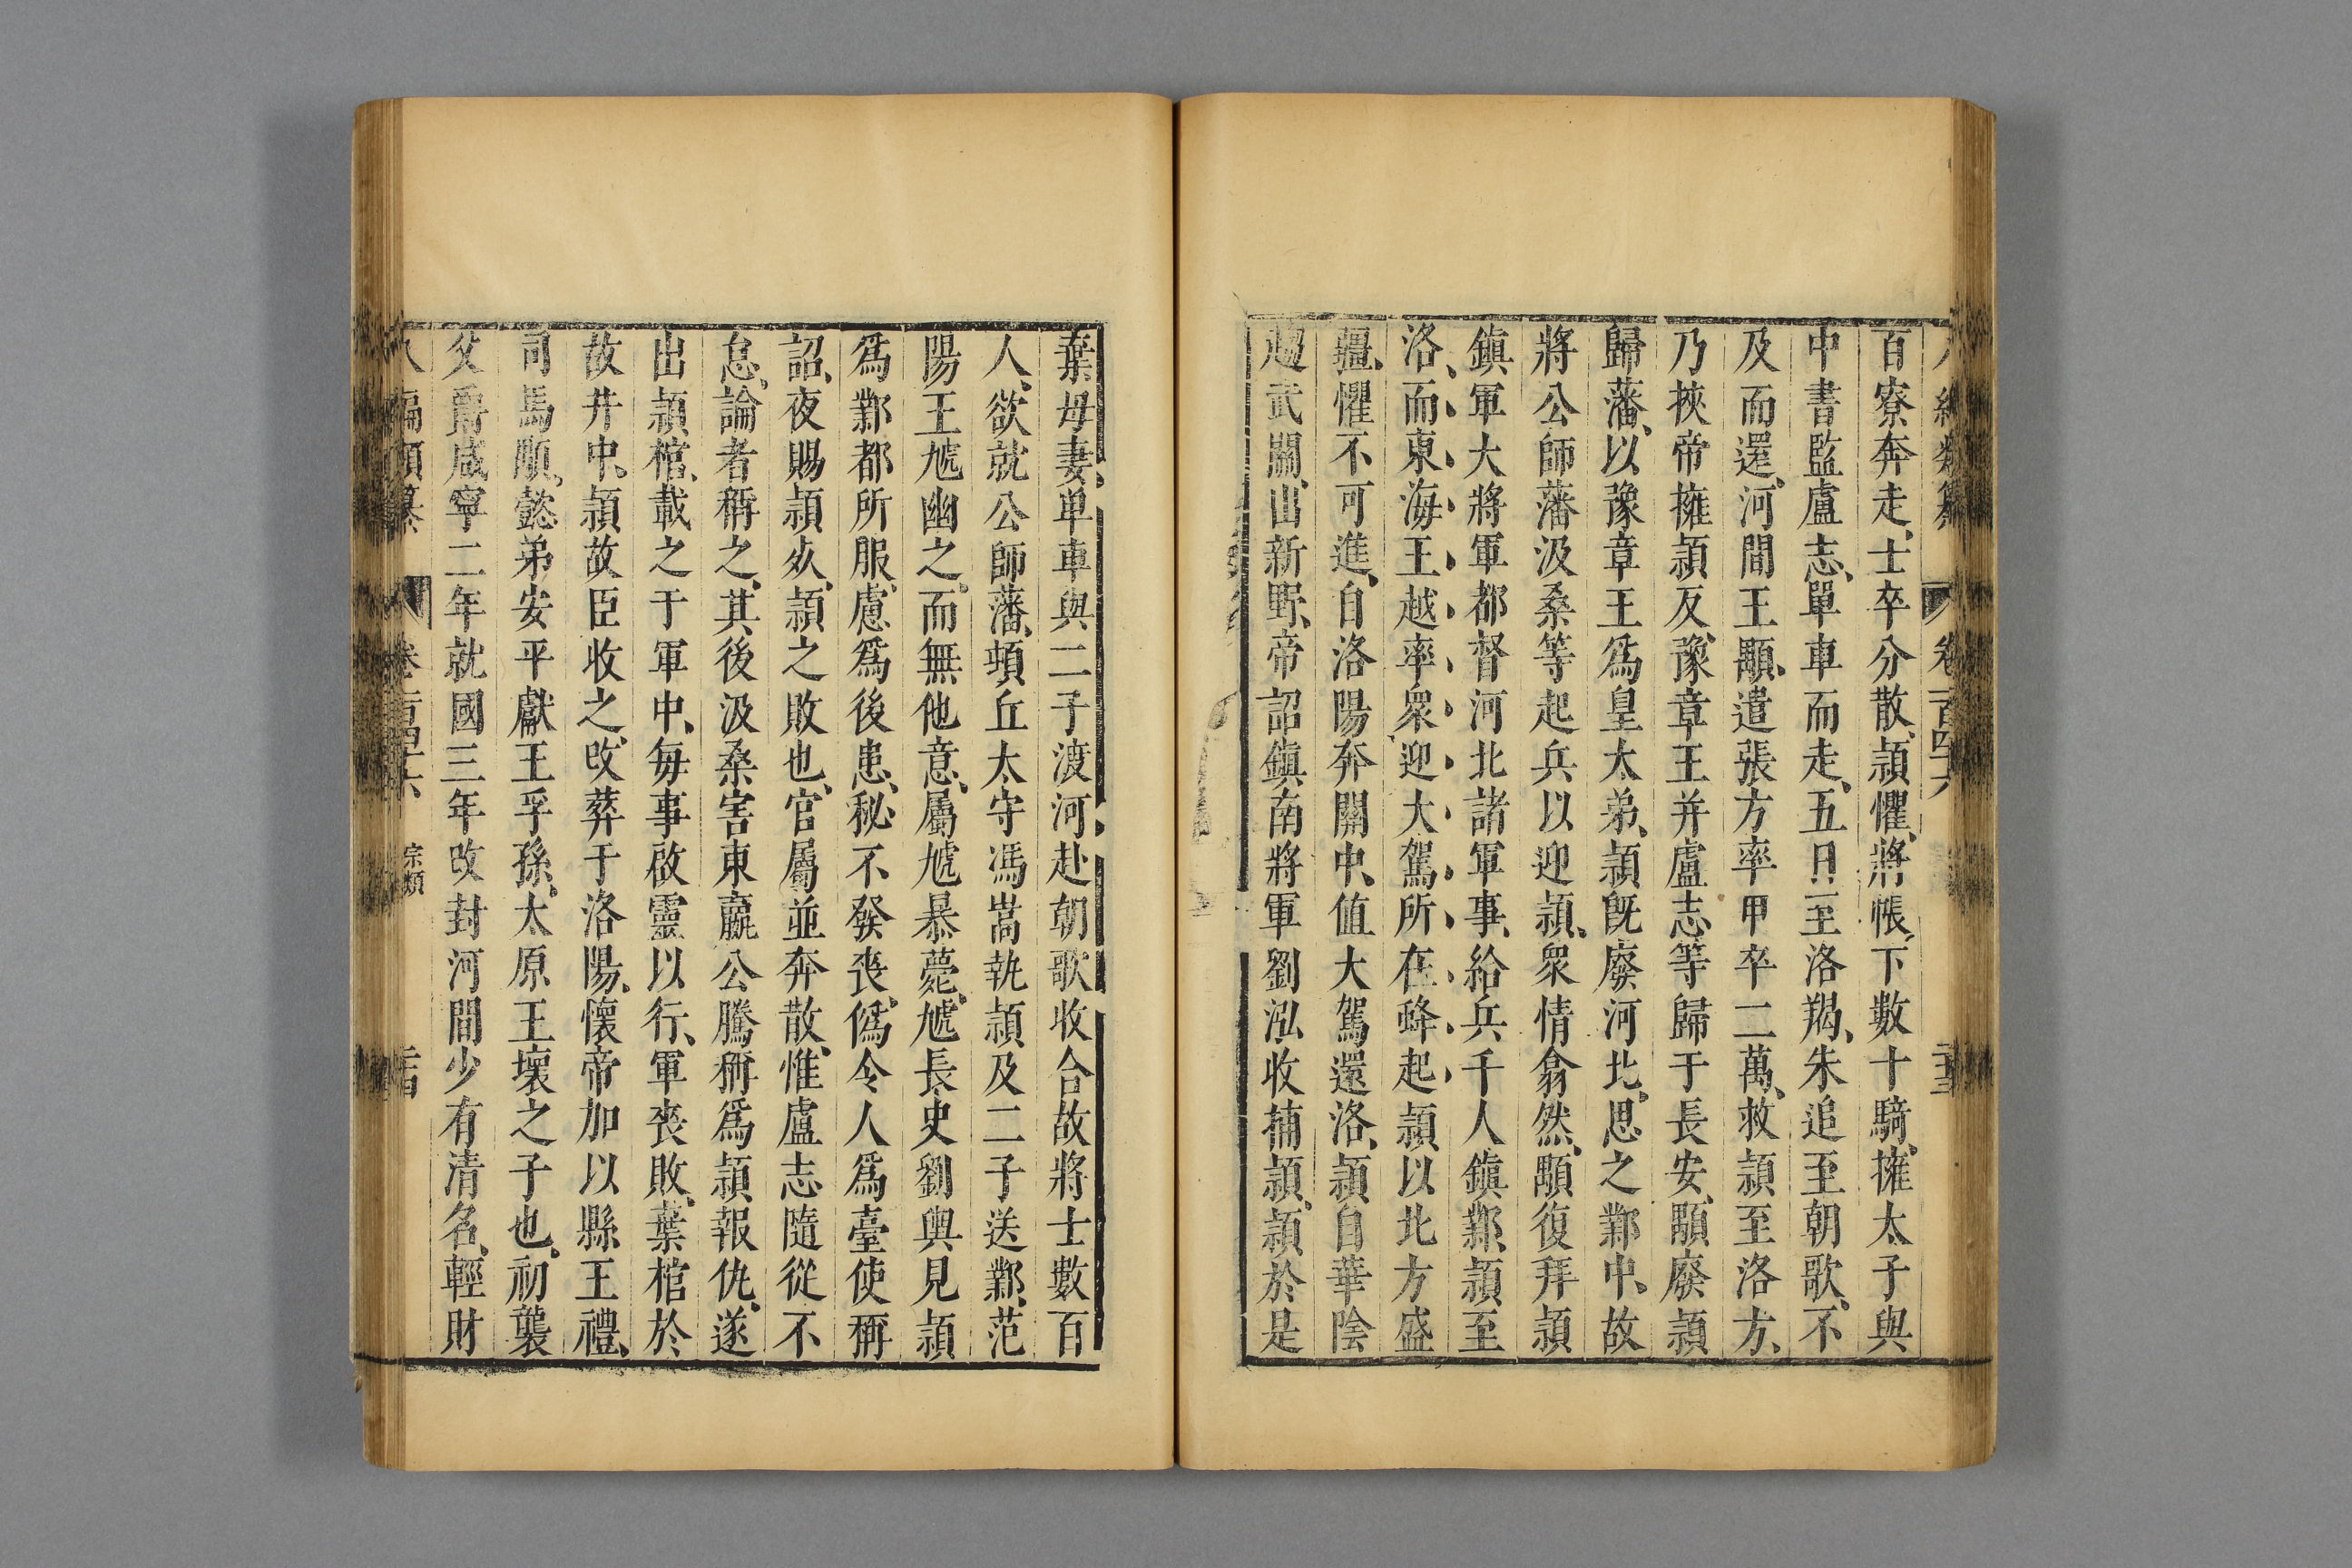 百寮奔走、士卒分散、頴懼、將帳下數十騎、擁太子與
中書監盧志、單車而走、五日至洛羯、朱追至朝歌、不
及而還、河間王顒、遣張方率甲卒二萬、救頴至洛方、
乃挾帝擁頴及豫章王并盧志等歸于長安、顒廢頴
歸藩、以豫章王爲皇太弟、頴旣廢河北、思之鄴中、故
將公師藩汲桑等起兵以迎頴、衆情翕然、顒復拜頴
鎭軍大將軍都督河北諸軍事、給兵千人鎭鄴、頴至
洛、而東海王越率衆迎大駕所在蜂起頴以北方盛
疆、懼不可進、自洛陽奔關中、値大駕還洛、頴自華陰
趨武關、出新野、帝詔鎭南將軍劉泓收捕頴、頴於是
棄母妻、单車與二子渡河赴朝歌收合故將士數百
人、欲就公師藩、頓丘太守馮嵩執頴及二子送鄴、范
陽王虓幽之、而無他意、屬虓暴薨、虓長史劉輿見頴
爲鄴都所服、慮爲後患、秘不發丧、僞令人爲臺使稱
詔、夜賜頴死、頴之敗也、官屬並奔散、惟盧志隨從不
怠、論者稱之、其後汲桑害東嬴公騰稱爲頴報仇、遂
出頴棺、載之于軍中、每事啟靈以行、軍丧敗、棄棺於
故井中、頴故臣收之、改葬于洛陽、懷帝加以縣王禮、
司馬顒、懿弟安平獻王孚孫、太原王壞之子也、初襲
父爵咸寧二年就國三年改封河間少有清名、輕財
八編類纂 卷二百四十六 宗類 二十四